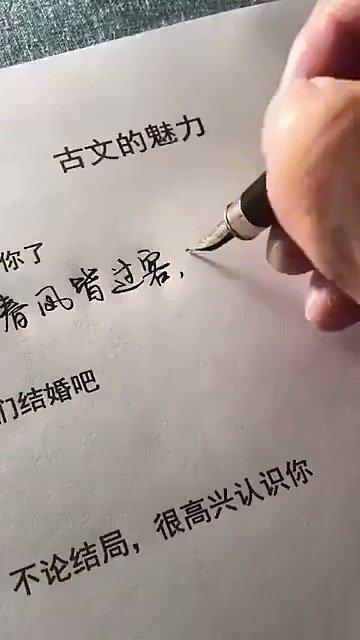 古文的魅力
你了
春风皆过客，
们结婚吧
不论结局，很高兴认识你